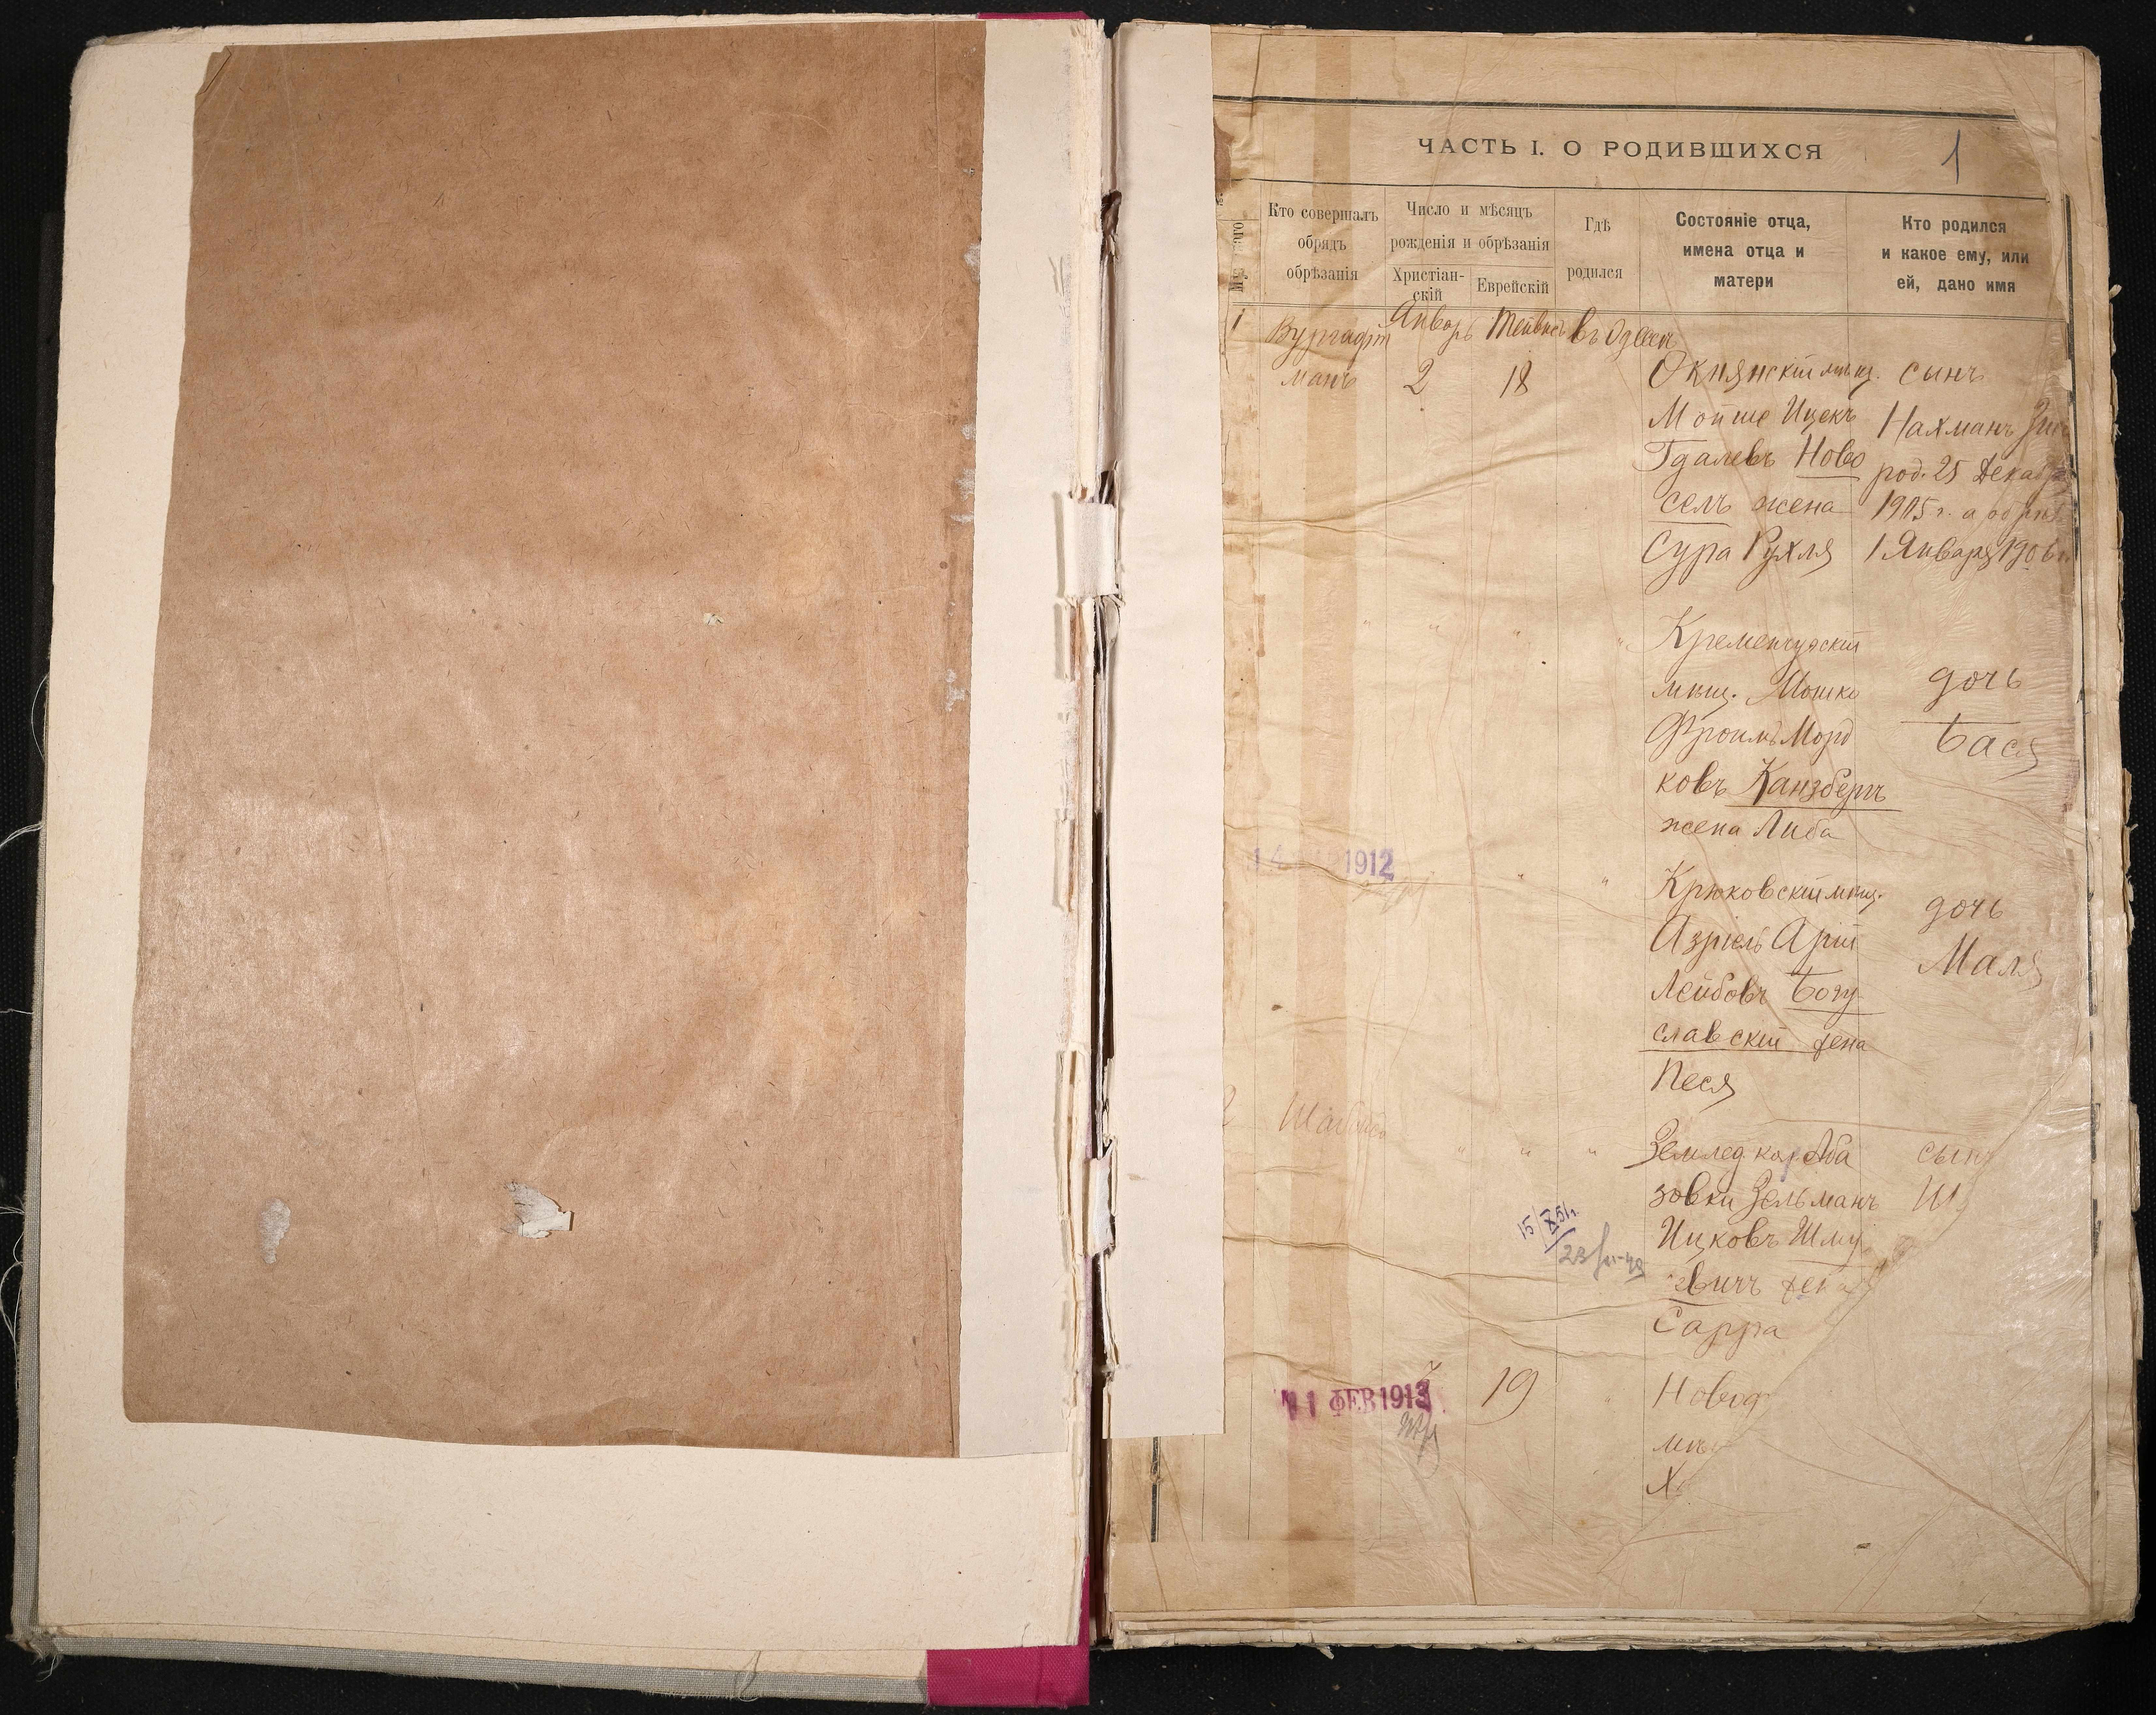 ЧАСТЬ I. О РОДИВШИХСЯ
1
Кто совершалъ
обрядъ
обрѣзанія
Число и мѣсяцъ
рожденія и обрѣзанія
Христіан-
скій
Еврейскій
Гдѣ
родился
Состояніе отца,
имена отца и
матери
Кто родился
и какое ему, или
ей, дано имя
1
Вургафт
манъ
Январь
2
18
въ Одессѣ
Окнянскій мѣщ.
Мойше Ицекъ
Гдалевъ Ново
селъ жена
Сура Рухля
сынъ
Нахманъ
род. 25 Декаб
1905 г. а
1 Января 1906
Кременчугскій
мѣщ. Мошко
Фроимъ Морд
ковъ Канзбергъ
жена Либа
дочь
Бася
1912
Крюковскій мѣщ.
Азріель Арій
Лейбовъ Богу
славскій жена
Песя
дочь
Маля
2
Землед. кол. Аба
зовки Зельманъ
Ицковъ Шму
евичъ жена
Сарра
сынъ
Ш
15/X 51г.
11 ФЕВ 1913
19
Новод
мѣ
Х